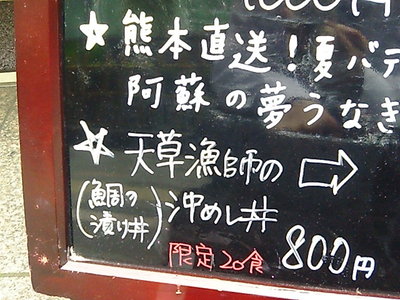 1000円
★熊本直送!夏バテ
阿蘇の夢うなぎ
★天草漁師の⇨
(鯛の漬け丼)沖めし丼
限定20食 800円